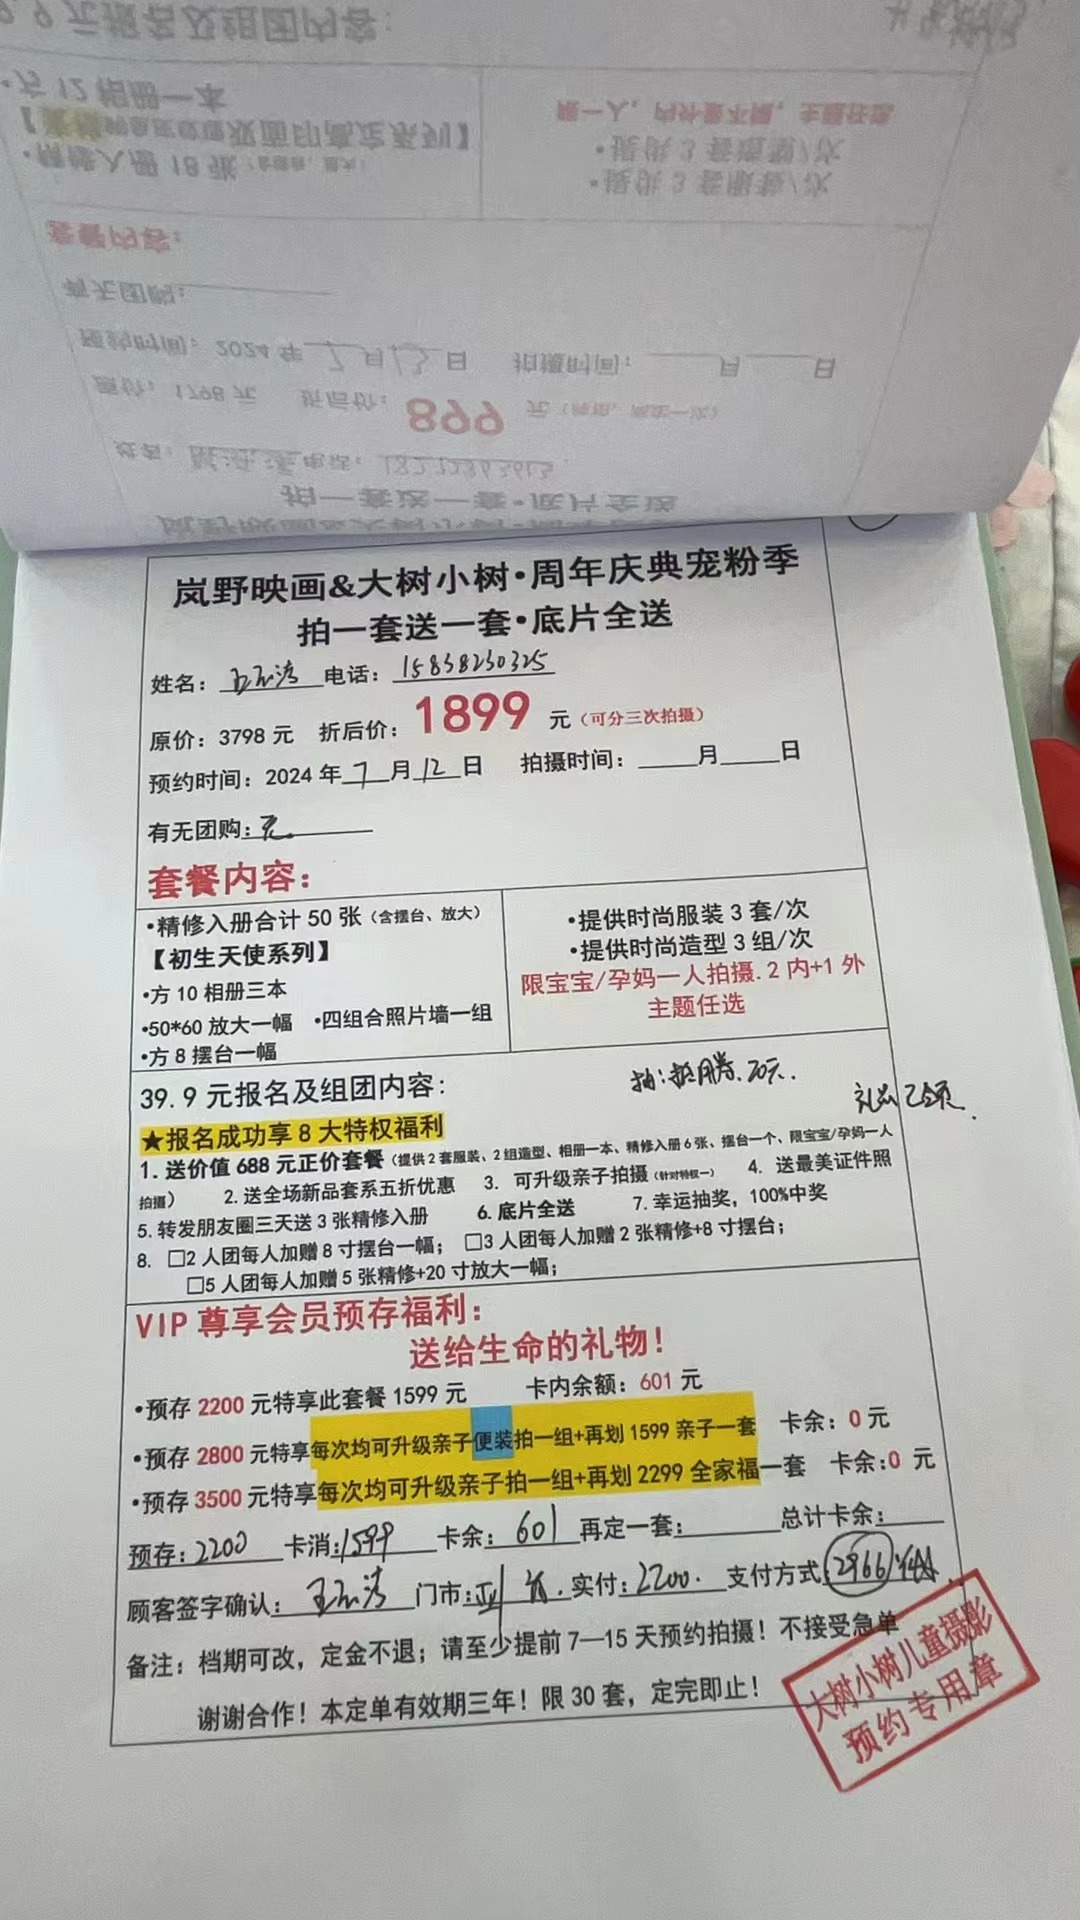 岚野映画&大树小树·周年庆典宠粉季
拍一套送一套·底片全送
姓名： 电话：15838230325
原价：3798 元 折后价：1899 元（可分三次拍摄）
预约时间：2024 年 7 月 12 日 拍摄时间：____月____日
有无团购：无
套餐内容：
·精修入册合计 50 张（含摆台、放大）
【初生天使系列】
·方 10 相册三本
·50*60 放大一幅 ·四组合照片墙一组
·方 8 摆台一幅
·提供时尚服装 3 套/次
·提供时尚造型 3 组/次
限宝宝/孕妈一人拍摄.2 内+1 外
主题任选
39.9 元报名及组团内容：
礼品已领.
★报名成功享 8 大特权福利
1. 送价值 688 元正价套餐（提供 2 套服装、2 组造型、相册一本、精修入册 6 张、摆台一个、限宝宝/孕妈一人
拍摄） 2. 送全场新品套系五折优惠 3. 可升级亲子拍摄（针对特权一） 4. 送最美证件照
5. 转发朋友圈三天送 3 张精修入册 6. 底片全送 7. 幸运抽奖，100%中奖
8. □2 人团每人加赠 8 寸摆台一幅； □3 人团每人加赠 2 张精修+8 寸摆台；
□5 人团每人加赠 5 张精修+20 寸放大一幅；
VIP 尊享会员预存福利：
送给生命的礼物！
·预存 2200 元特享此套餐 1599 元 卡内余额：601 元
·预存 2800 元特享每次均可升级亲子便装拍一组+再划 1599 亲子一套 卡余：0 元
·预存 3500 元特享每次均可升级亲子拍一组+再划 2299 全家福一套 卡余:0 元
预存：2200 卡消:1599 卡余：601 再定一套：______ 总计卡余：____
顾客签字确认： 门市： 实付：2200. 支付方式：2966
备注：档期可改，定金不退；请至少提前 7—15 天预约拍摄！不接受急单
谢谢合作！本定单有效期三年！限 30 套，定完即止！
大树小树儿童摄影
预约专用章